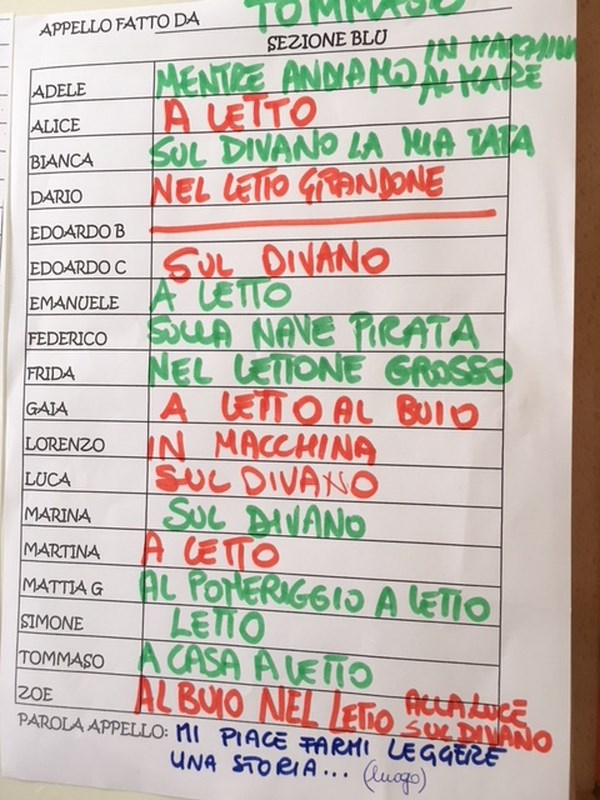 APPELLO FATTO DA TOMMASO
SEZIONE BLU
ADELE MENTRE ANDIAMO IN MACCHINA AL MARE
ALICE A LETTO
BIANCA SUL DIVANO LA MIA TATA
DARIO NEL LETTO GIRANDONE
EDOARDO B
EDOARDO C SUL DIVANO
EMANUELE A LETTO
FEDERICO SULLA NAVE PIRATA
FRIDA NEL LETTONE GROSSO
GAIA A LETTO AL BUIO
LORENZO IN MACCHINA
LUCA SUL DIVANO
MARINA SUL DIVANO
MARTINA A LETTO
MATTIA G AL POMERIGGIO A LETTO
SIMONE LETTO
TOMMASO A CASA A LETTO
ZOE AL BUIO NEL LETTO ALLA LUCE SUL DIVANO
PAROLA APPELLO: MI PIACE FARMI LEGGERE
UNA STORIA... (luogo)